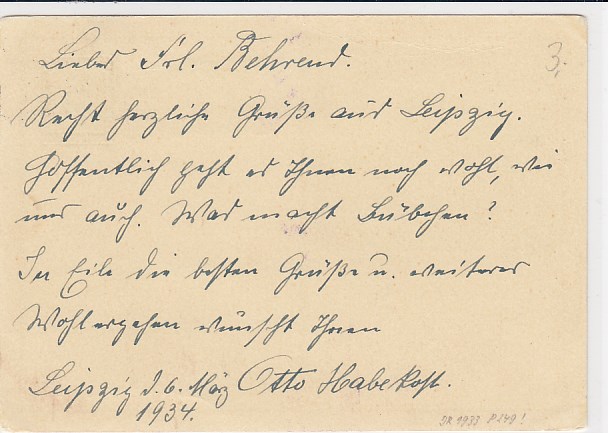 Liebes Frl. Behrend.
3,
Recht herzliche Grüße aus Leipzig.
Hoffentlich geht es Ihnen noch wohl, wie
uns auch. Was macht Bübchen?
In Eile die besten Grüße u. weiteres
Wohlergehen wünscht Ihnen
Leipzig d. 6. März Otto Habekost.
1934.
DR 1933 P249!